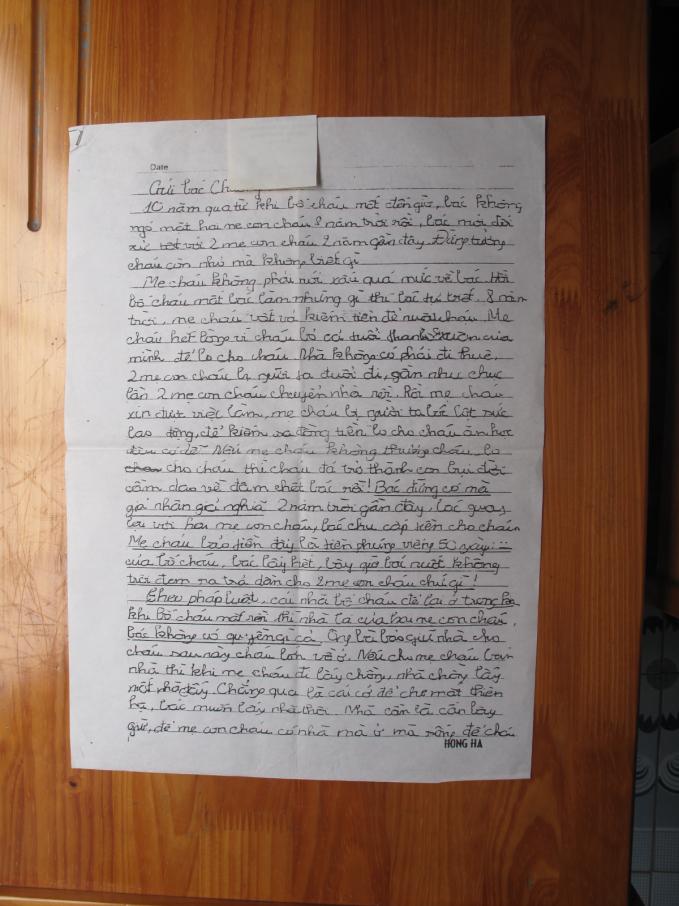 Date
Gửi bác Chương
10 năm qua từ khi bố cháu mất đến giờ, bác không
ngó mặt hai mẹ con cháu 8 năm trời rồi, bác mới đối
xử tốt với 2 mẹ con cháu 2 năm gần đây. Đừng tưởng
cháu còn nhỏ mà không biết gì
Mẹ cháu không phải nói xấu quá mức về bác. Hồi
bố cháu mất bác làm những gì thì bác tự biết. 8 năm
trời, mẹ cháu vất vả kiếm tiền để nuôi cháu. Mẹ
cháu hết lòng vì cháu bỏ cả tuổi thanh xuân của
mình để lo cho cháu. Nhà không có phải đi thuê,
2 mẹ con cháu bị người ta đuổi đi, gần như chục
lần 2 mẹ con cháu chuyển nhà rồi. Rồi mẹ cháu
xin được việc làm, mẹ cháu bị người ta bóc lột sức
lao động, để kiếm ra đồng tiền lo cho cháu ăn học
đâu có dễ. Nếu mẹ cháu không thương cháu, lo
cho cháu thì cháu đã trở thành con bụi đời
cầm dao về đâm chết bác rồi! Bác đừng có mà
giả nhân giả nghĩa 2 năm trời gần đây, bác quay
lại với hai mẹ con cháu, bác chu cấp tiền cho cháu.
Mẹ cháu bảo tiền đấy là tiền phúng viếng 50 ngày
của bố cháu, bác lấy hết, bây giờ bác nuốt không
trôi đem ra trả dần cho 2 mẹ con cháu chứ gì!
Theo pháp luật, cái nhà bố cháu để lại ở trong
khi bố cháu mất rồi thì nhà là của hai mẹ con cháu,
bác không có quyền gì cả. Ông bà bảo giữ nhà cho
cháu sau này cháu lớn về ở. Nếu cho mẹ cháu bán
nhà thì khi mẹ cháu đi lấy chồng, nhà chồng lấy
mất nhà đấy. Chẳng qua là cái cớ để che mắt thiên
hạ, bác muốn lấy nhà thôi. Nhà cần là cần bây
giờ, để mẹ con cháu có nhà mà ở mà sống, để cháu
HONG HA